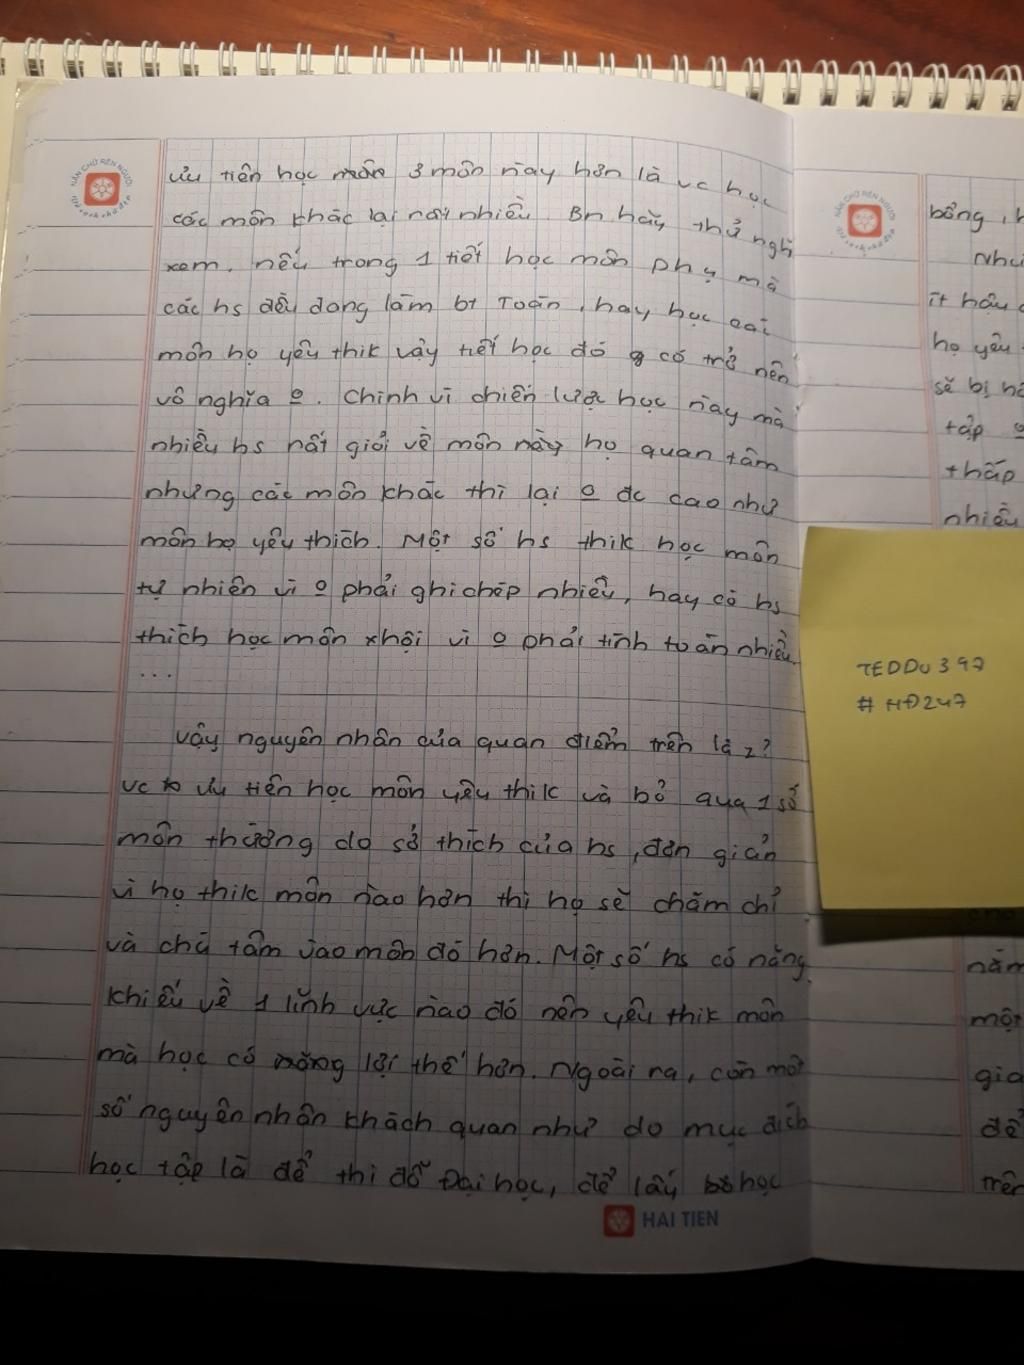 NẮN CHỮ RÈN NGƯỜI
Giữ vở sạch chữ đẹp
ưu tiên học 3 môn này hơn là vc học
các môn khác lại nảy nhiều. Bn hãy thử nghĩ
xem, nếu trong 1 tiết học môn phụ mà
các hs đều đang làm bt Toán, hay học các
môn họ yêu thik vậy tiết học đó có trở nên
vô nghĩa o. Chính vì chiến lược học này mà
nhiều hs rất giỏi về môn này họ quan tâm
nhưng các môn khác thì lại o đc cao như
môn họ yêu thích. Một số hs thik học môn
tự nhiên vì o phải ghi chép nhiều, hay có hs
thích học môn xhội vì o phải tính toán nhiều.
...
Vậy nguyên nhân của quan điểm trên là z?
vc ưu tiên học môn yêu thik và bỏ qua 1 số
môn thường do sở thích của hs, đơn giản
vì họ thik môn nào hơn thì họ sẽ chăm chỉ
và chú tâm vào môn đó hơn. Một số hs có năng
khiếu về 1 lĩnh vực nào đó nên yêu thik môn
mà học có lợi thế hơn. Ngoài ra, còn một
số nguyên nhân khách quan như do mục đích
học tập là để thi đỗ Đại học, để lấy học
HAI TIEN
NẮN CHỮ RÈN NGƯỜI
Giữ vở sạch chữ đẹp
bổng, h
Như
ít hậu
họ yêu
sẽ bị
tập
thấp
nhiều
TEDDU397
#HĐ247
năm
một
gia
để
trên